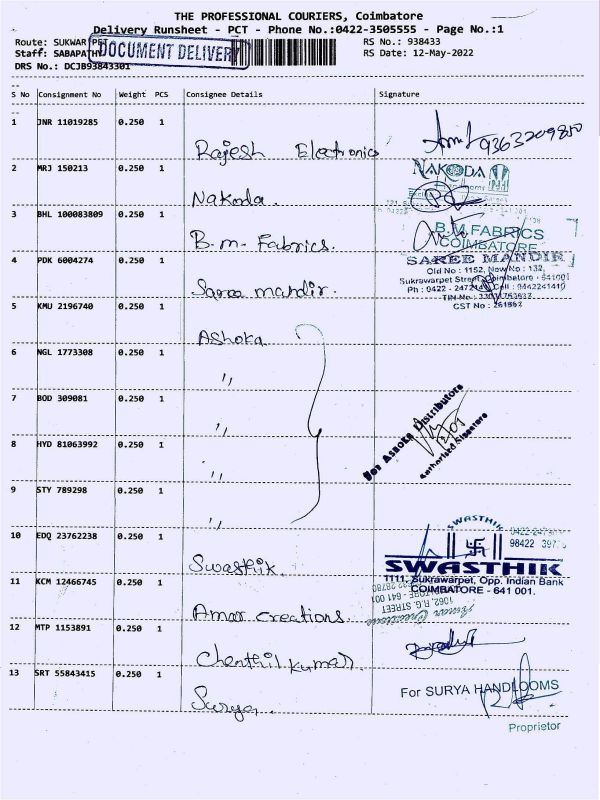 THE PROFESSIONAL COURIERS, Coimbatore
Delivery Runsheet - PCT - Phone No.:0422-3505555 - Page No.:1
Route: SUKWAR PET RS No.: 938433
Staff: SABAPATHY DOCUMENT DELIVERY RS Date: 12-May-2022
DRS No.: DCJB93843301
S No Consignment No Weight PCS Consignee Details Signature
1 JNR 11019285 0.250 1 Rajesh Electronics 9363209850
2 MRJ 150213 0.250 1 Nakoda. NAKODA
3 BHL 100083809 0.250 1 B.m. Fabrics. B.M.FABRICS
COIMBATORE
4 PDK 6004274 0.250 1 Saree mandir. SAREE MANDIR
Old No : 1152, New No : 132,
Sukrawarpet Street, Coimbatore - 641001
Ph : 0422 - Cell : 9442241410
TIN No :
CST No :
5 KMU 2196740 0.250 1 Ashoka
6 NGL 1773308 0.250 1 ,,
7 BOD 309081 0.250 1 ,,
For Ashoka Distributors
Authorised Signatore
8 HYD 81063992 0.250 1 ,,
9 STY 789298 0.250 1 ,,
10 EDQ 23762238 0.250 1 Swasthik. SWASTHIK
98422
SWASTHIK
1111, Sukrawarpet, Opp. Indian Bank
COIMBATORE - 641 001.
11 KCM 12466745 0.250 1 Amar creations. Amar Creations
1062, R.G. STREET
COIMBATORE - 641 001
12 MTP 1153891 0.250 1 Chenthil kumar
13 SRT 55843415 0.250 1 Surya. For SURYA HANDLOOMS
Proprietor